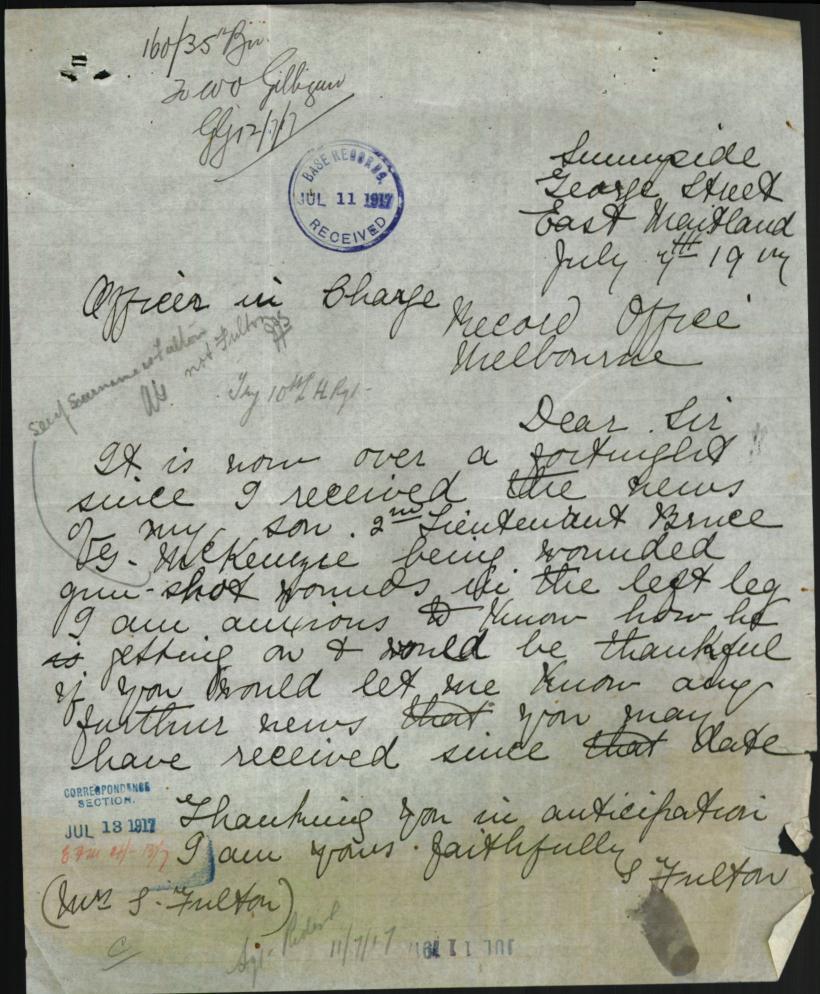 160/35" Bn
To WO Gilligan
12/7/17
BASE RECORDS.
JUL 11 1917
RECEIVED
Sunnyside
George Street
East Maitland
July 7th 1917
Officer in Charge
Record Office
Melbourne
not Fulton
Try 10th L H Rgt.
Dear Sir
It is now over a fortnight
since I received the news
of my son. 2nd Lieutenant Bruce
G. McKenzie being wounded
gun-shot wounds in the left leg
I am anxious to know how he
is getting on & would be thankful
if you would let me know any
further news that you may
have received since that date
CORRESPONDENCE
SECTION.
JUL 13 1917
Thanking you in anticipation
I am yours faithfully
S Fulton
(Mrs S. Fulton)
11/7/17
JUL 11 191